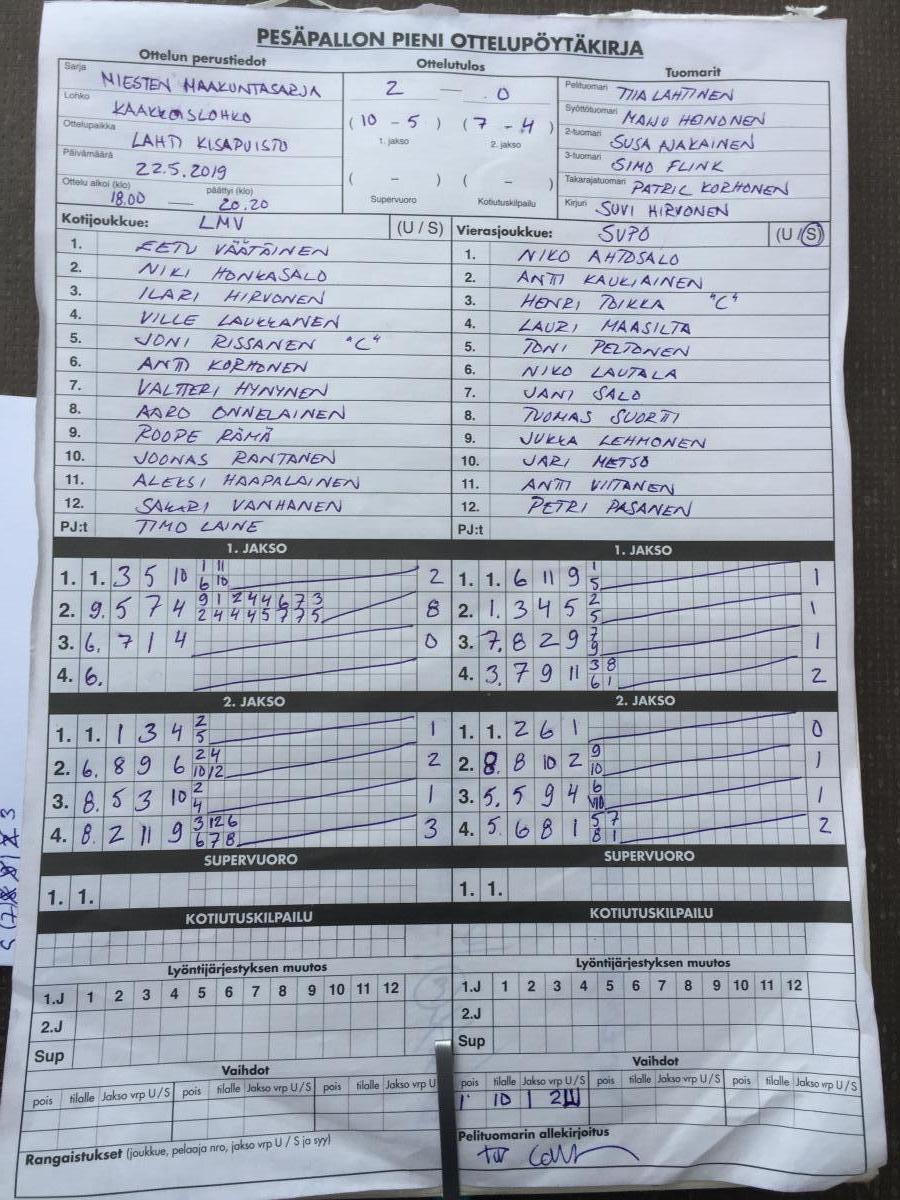 PESÄPALLON PIENI OTTELUPÖYTÄKIRJA
Ottelun perustiedot Ottelutulos Tuomarit
Sarja MIESTEN MAAKUNTASARJA
Lohko KAAKKOISLOHKO
Ottelupaikka LAHTI KISAPUISTO
Päivämäärä 22.5.2019
Ottelu alkoi (klo) 18.00 — päättyi (klo) 20.20
2 — 0
(10 - 5) (7 - 4)
1. jakso 2. jakso
( - ) ( - )
Supervuoro Kotiutuskilpailu
Pelituomari TIIA LAHTINEN
Syöttötuomari MANU HEINONEN
2-tuomari SUSA AJAKAINEN
3-tuomari SIMO FLINK
Takarajatuomari PATRIC KORHONEN
Kirjuri SUVI HIRVONEN
Kotijoukkue: LMV (U / S)
1. EETU VÄÄTÄINEN
2. NIKI HONKASALO
3. ILARI HIRVONEN
4. VILLE LAUKKANEN
5. JONI RISSANEN "C"
6. ANTTI KORHONEN
7. VALTTERI HYNYNEN
8. AARO ONNELAINEN
9. ROOPE RÄMÄ
10. JOONAS RANTANEN
11. ALEKSI HAAPALAINEN
12. SAKARI VANHANEN
PJ:t TIMO LAINE
Vierasjoukkue: SUPO (U / S)
1. NIKO AHTOSALO
2. ANTTI KAUKIAINEN
3. HENRI TOIKKA "C"
4. LAURI MAASILTA
5. TONI PELTONEN
6. NIKO LAUTALA
7. JANI SALO
8. TUOMAS SUORTTI
9. JUKKA LEHMONEN
10. JARI METSO
11. ANTTI VIITANEN
12. PETRI PASANEN
PJ:t
1. JAKSO
1. 1. 3 5 10 1 11 2
6 10
2. 9. 5 7 4 9 1 2 4 4 6 7 3 8
2 4 4 4 5 7 7 5
3. 6. 7 1 4 0
4. 6.
1. JAKSO
1. 1. 6 11 9 1 1
5
2. 1. 3 4 5 2 1
5
3. 7. 8 2 9 7 1
9
4. 3. 7 9 11 3 8 2
6 1
2. JAKSO
1. 1. 1 3 4 2 1
5
2. 6. 8 9 6 2 4 2
10 12
3. 8. 5 3 10 2 1
4
4. 8. 2 11 9 3 12 6 3
6 7 8
2. JAKSO
1. 1. 2 6 1 0
2. 8. 8 10 2 9 1
10
3. 5. 5 9 4 6 1
4. 5. 6 8 1 5 7 2
8 1
SUPERVUORO
1. 1.
SUPERVUORO
1. 1.
KOTIUTUSKILPAILU
KOTIUTUSKILPAILU
Lyöntijärjestyksen muutos
1.J 1 2 3 4 5 6 7 8 9 10 11 12
2.J
Sup
Lyöntijärjestyksen muutos
1.J 1 2 3 4 5 6 7 8 9 10 11 12
2.J
Sup
Vaihdot
pois tilalle Jakso vrp U / S pois tilalle Jakso vrp U / S pois tilalle Jakso vrp U
Vaihdot
pois tilalle Jakso vrp U / S pois tilalle Jakso vrp U / S pois tilalle Jakso vrp U / S
1 10 1 2
Rangaistukset (joukkue, pelaaja nro, jakso vrp U / S ja syy)
Pelituomarin allekirjoitus